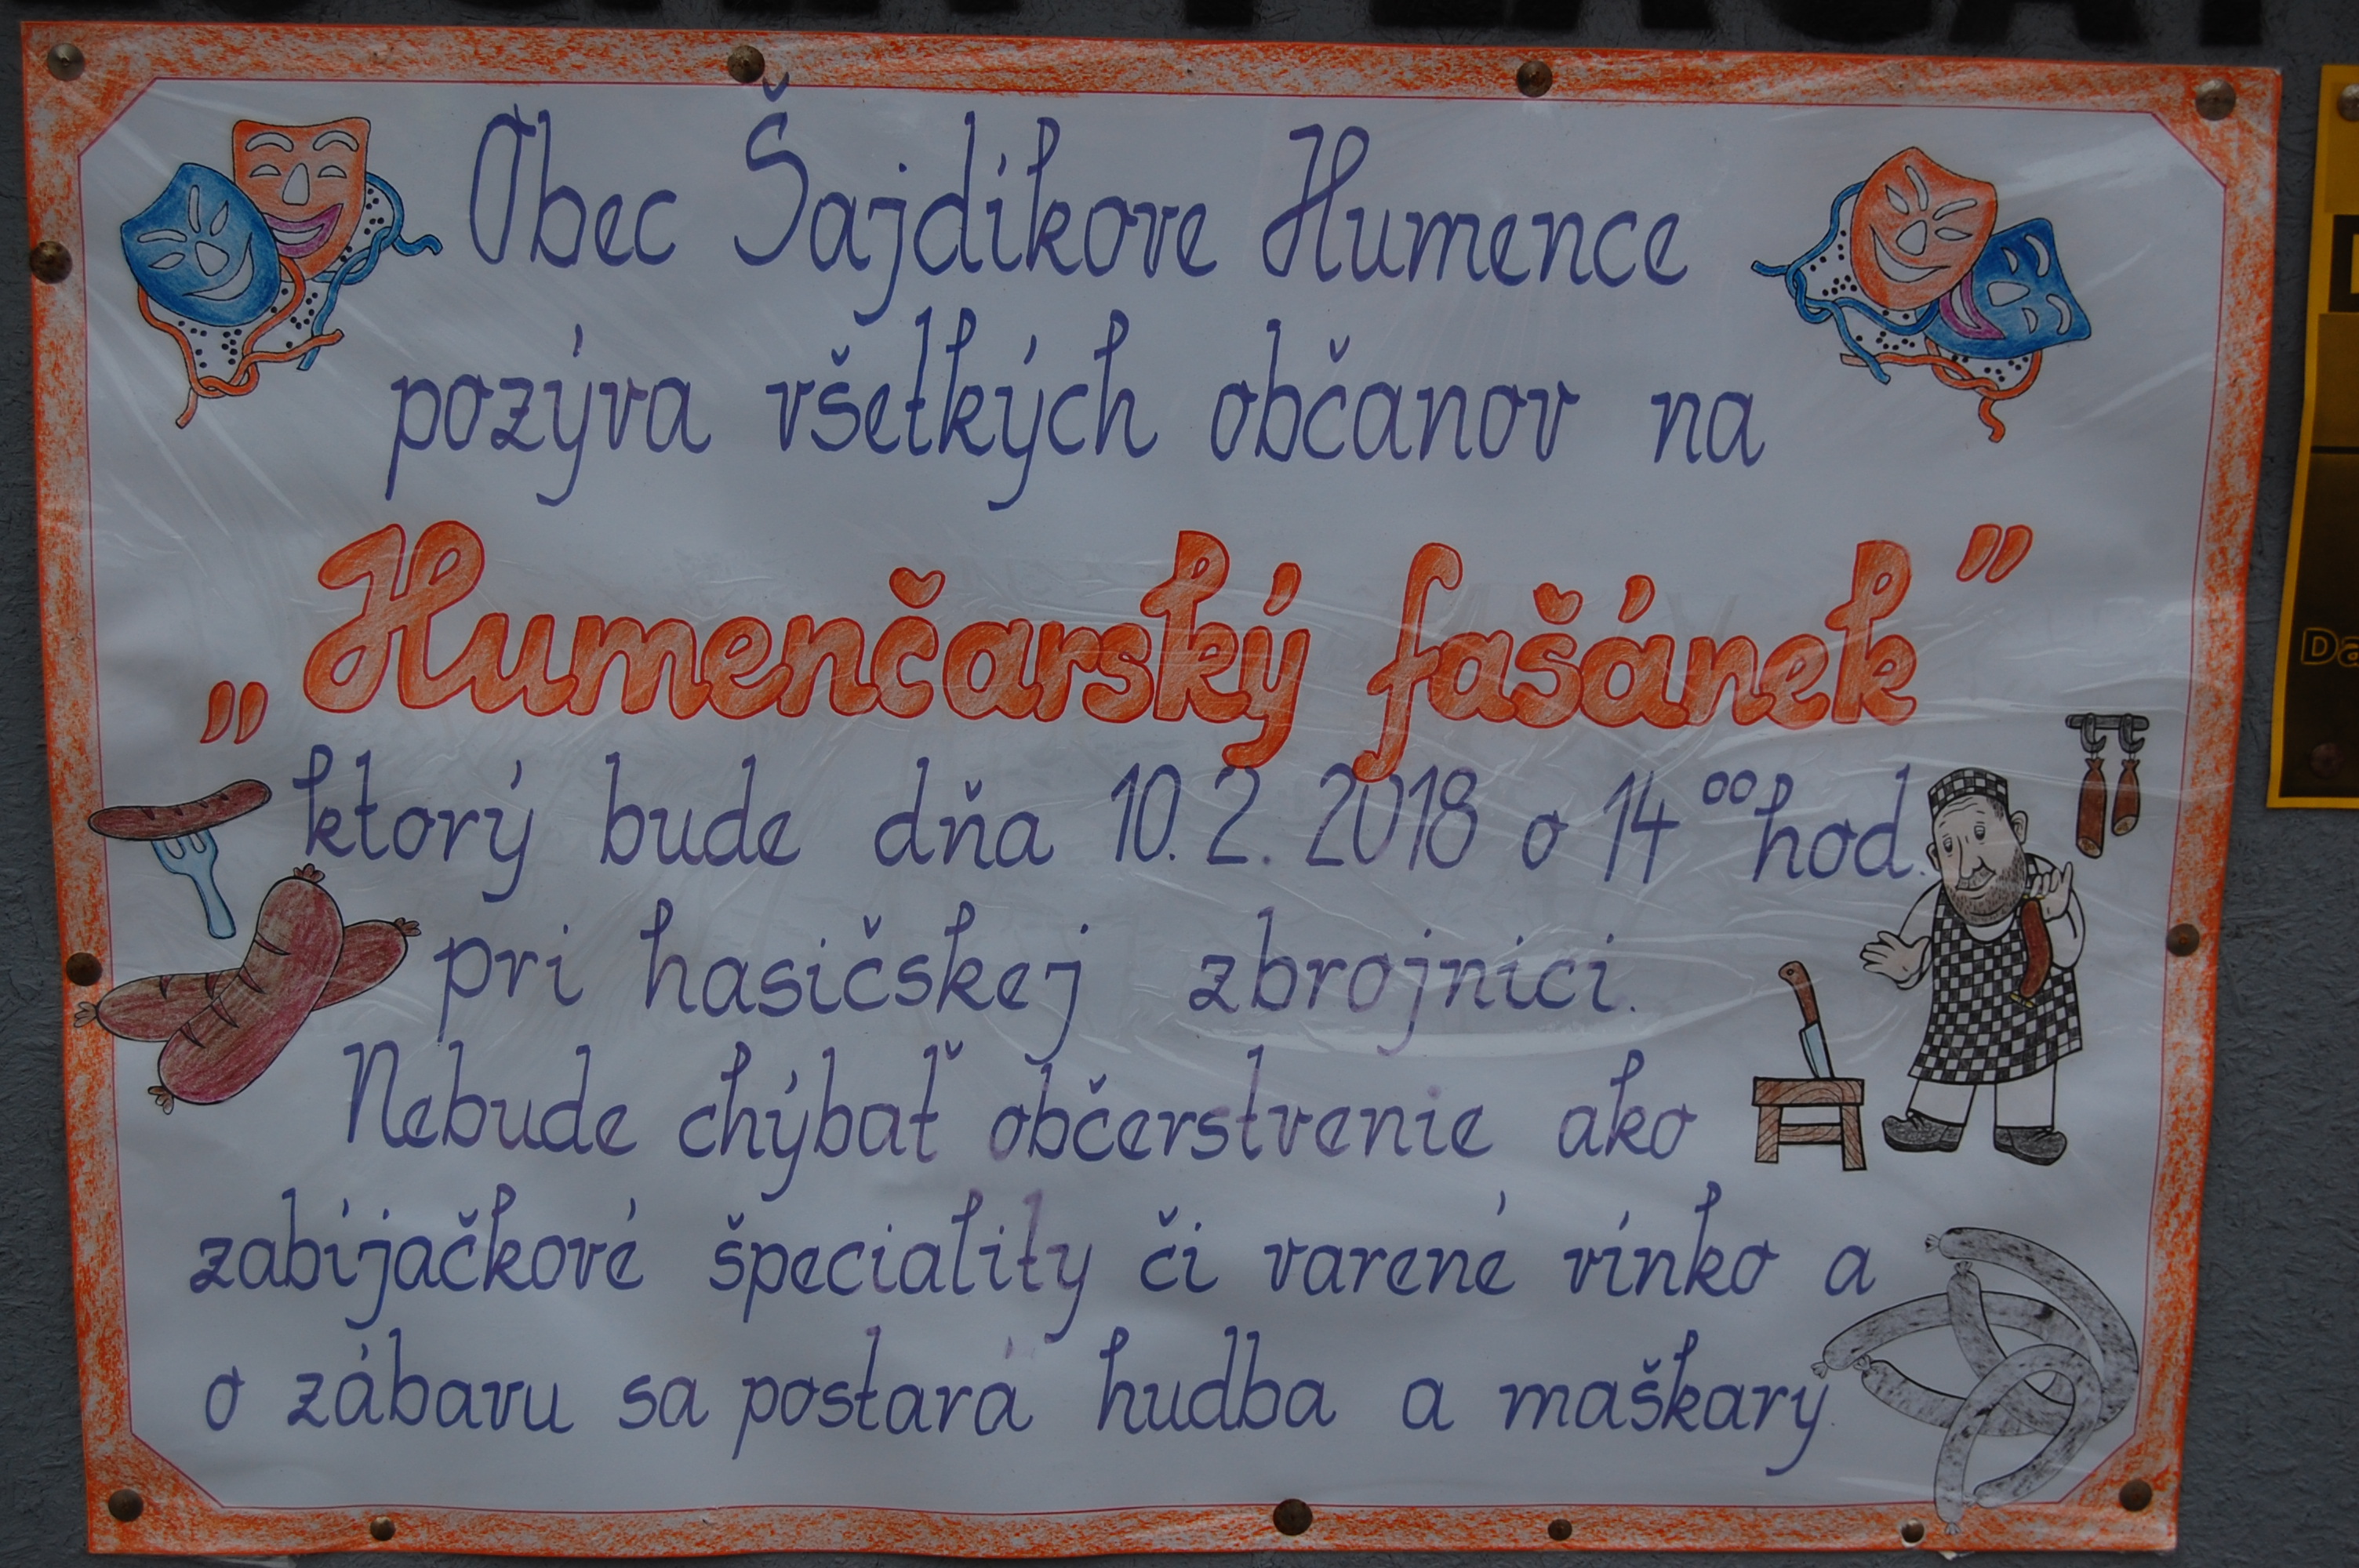 Obec Šajdíkove Humence
pozýva všetkých občanov na
„Humenčarský fašánek”
ktorý bude dňa 10.2.2018 o 14⁰⁰ hod.
pri hasičskej zbrojnici.
Nebude chýbať občerstvenie ako
zabíjačkové špeciality či varené vínko a
o zábavu sa postará hudba a maškary.
Da